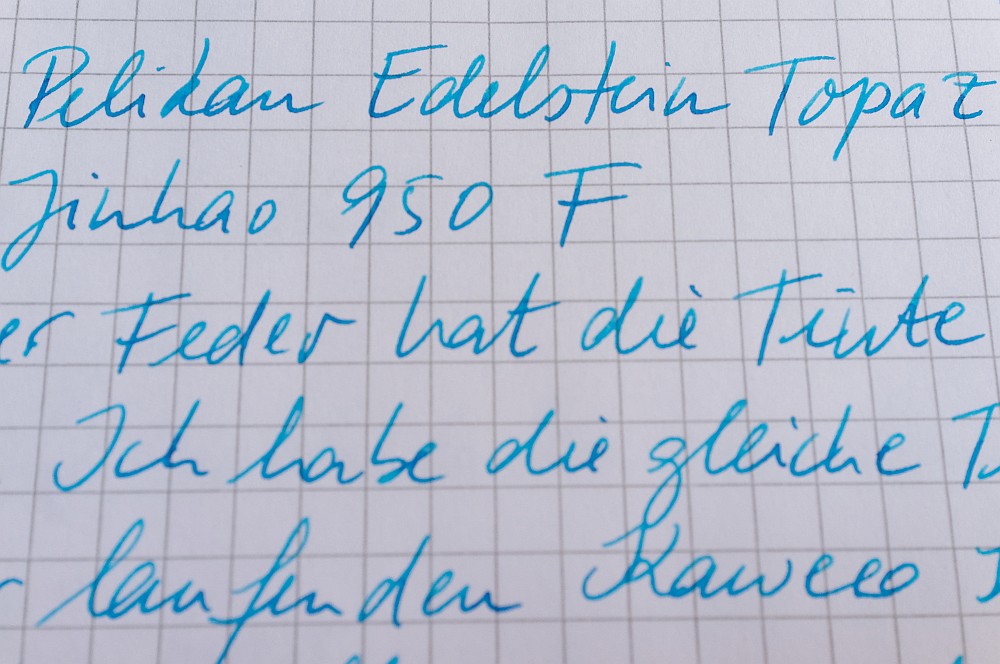 Pelikan Edelstein Topaz
Jinhao 950 F
er Feder hat die Tinte
Ich habe die gleiche
laufenden Kaweco